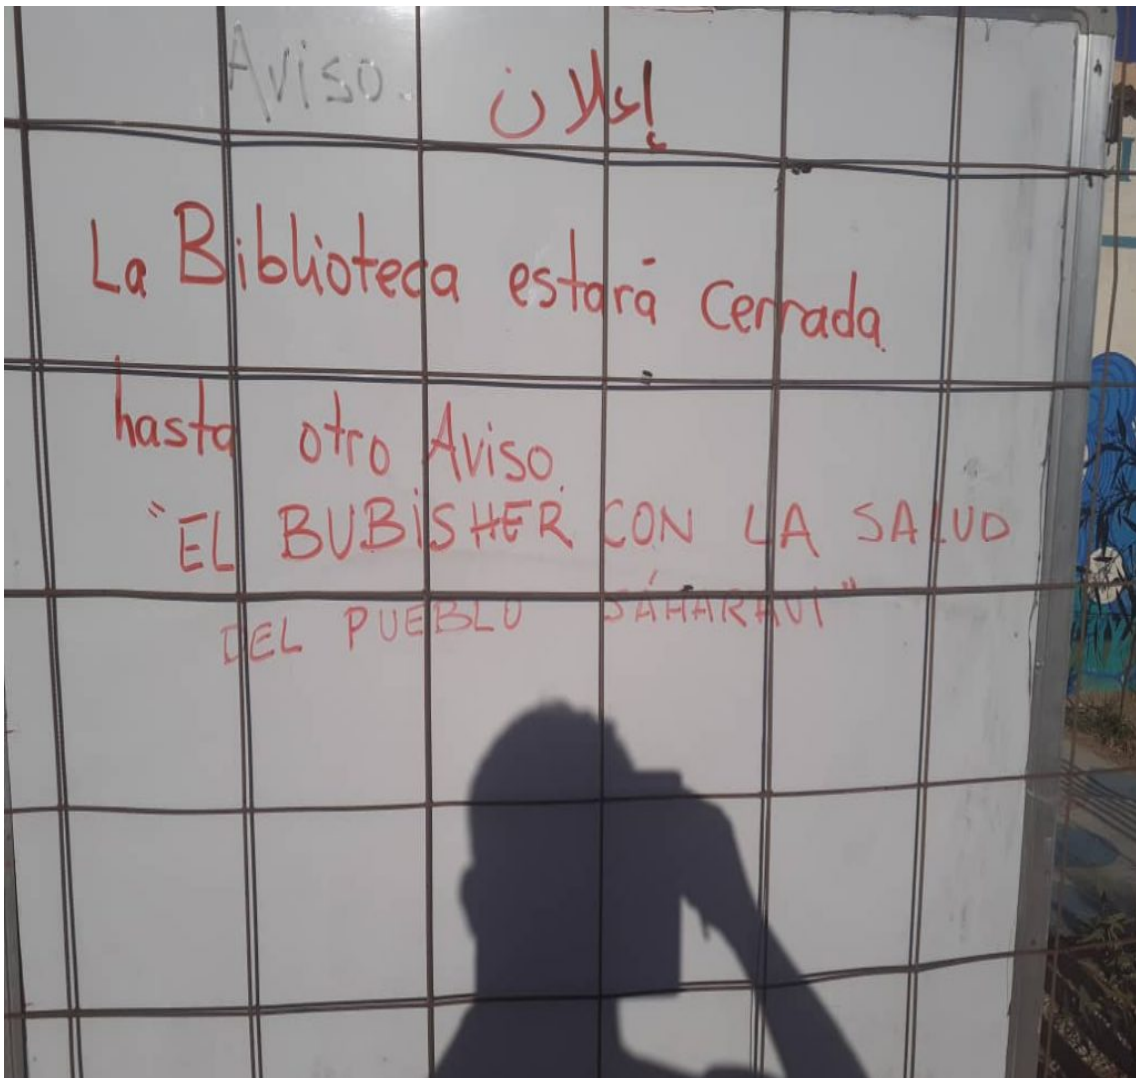 Aviso. إعلان
La Biblioteca estará Cerrada
hasta otro Aviso.
"EL BUBISHER CON LA SALUD
DEL PUEBLO SÁHARAUI"